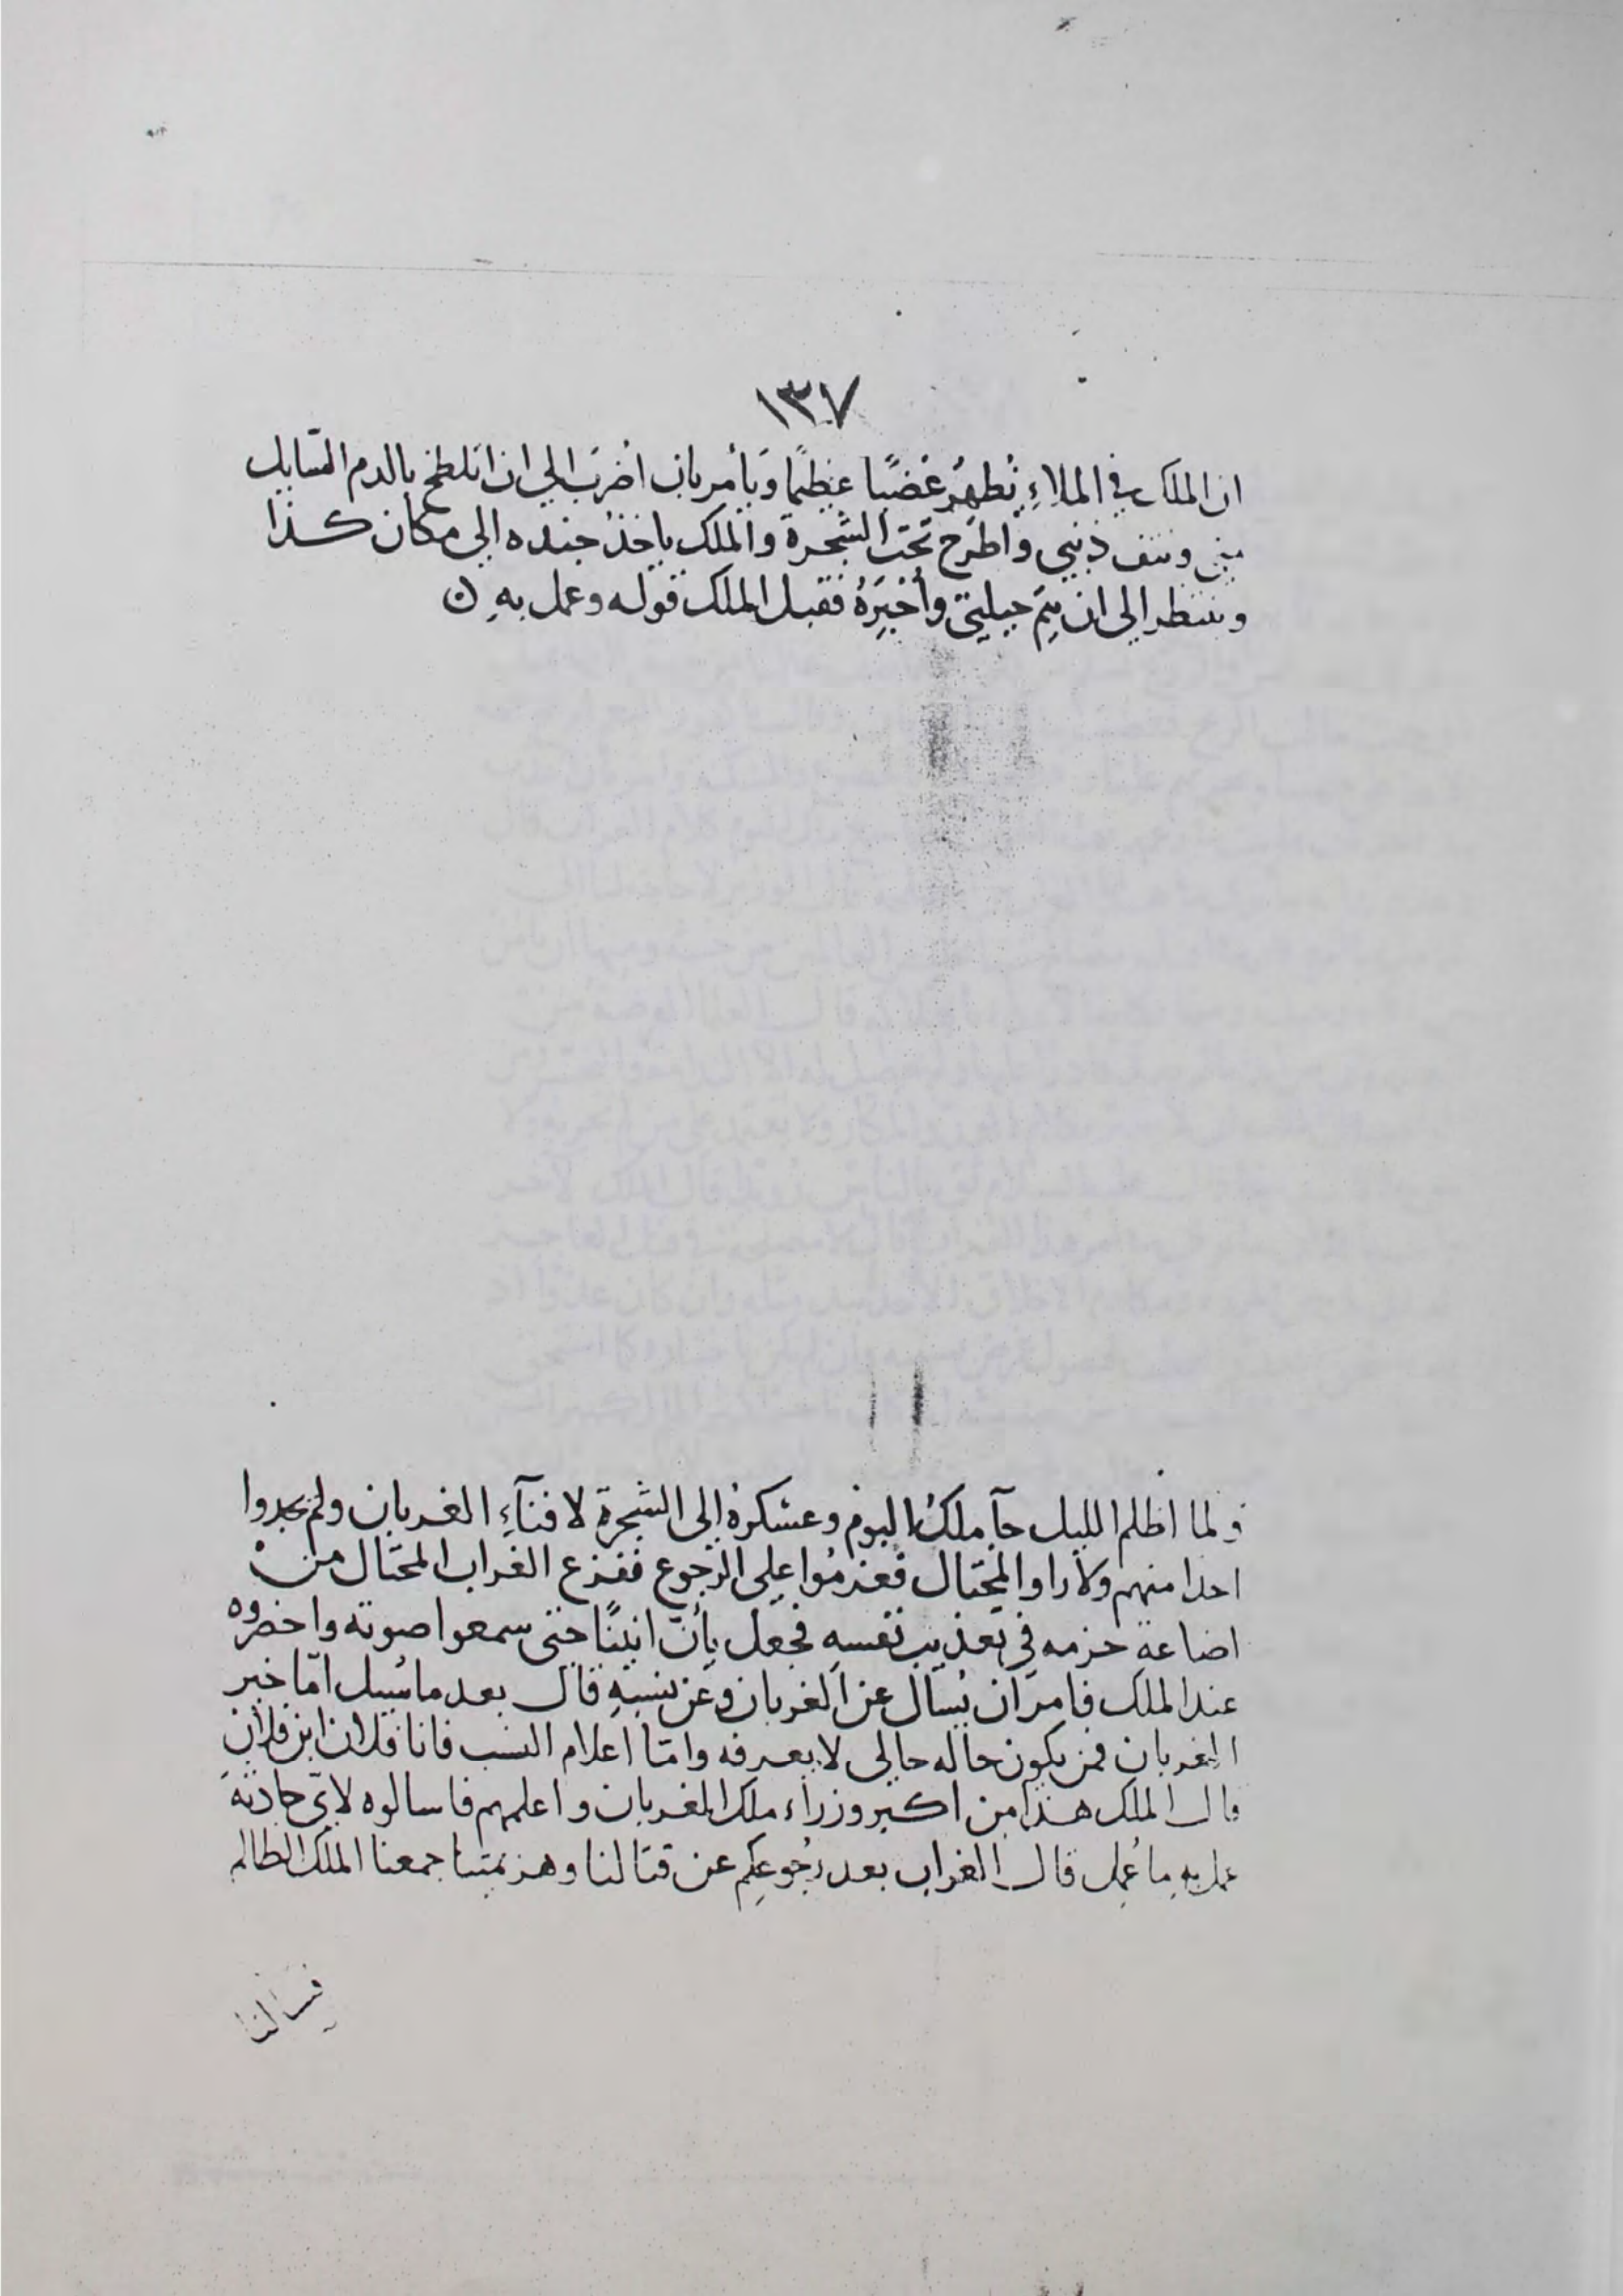 ١٣٧
ان الملك في الملاءِ يُظهرُ غضبًا عظيمًا وَيأمر بان اُضربَ الي ان اتلطخ بالدم السّايل
مِني وينتف ذنبي واُطرح تحت الشجرة والملك ياخذ جنده الي مكان كذا
وينتظر الي ان يتم حيلتي وأُخبِرَهُ فقبل الملك قوله وعمل بهِ ن
ولما اظلم الليل جآ ملكُ البوم وعسكرهُ الى الشجرة لافنآءِ الغربان ولم يجدوا
احدا منهم ولا راوا المحتال فعزموا على الرجوع ففزع الغراب المحتال من
اضاعة حزمه في تعذيب نفسهِ فجعل يأنّ انينًا حتى سمعوا صوته واحضروه
عند الملك فامر ان يُسال عن الغربان وعن نسبهِ قال بعد ما سُيل امّا خبر
الغربان فمن يكون حاله حالي لا يعرفه وامّا اعلام النسب فانا فلان ابن فلان
قال الملك هذا من اكبر وزراء ملك الغربان واعلمهم فاسالوه لايّ حادثة
عمل بهِ ما عُمِل قال الغراب بعد رُجوعِكم عن قتالنا وهزيمتنا جمعنا الملك الظالم
فسالنا